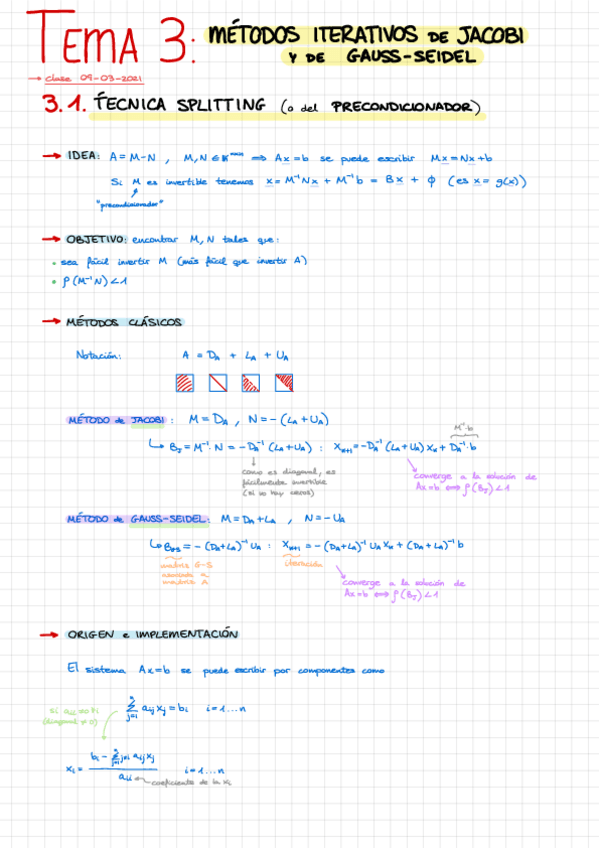 TEMA 3: MÉTODOS ITERATIVOS DE JACOBI
Y DE GAUSS-SEIDEL
→ clase 09-03-2021
3.1. TÉCNICA SPLITTING (o del PRECONDICIONADOR)
→ IDEA: A = M-N , M,N ∈ ⟹ Ax=b se puede escribir Mx=Nx+b
Si M es invertible tenemos x = M⁻¹Nx + M⁻¹b = Bx + ϕ (es x = g(x))
"precondicionador"
→ OBJETIVO: encontrar M, N tales que:
• sea fácil invertir M (más fácil que invertir A)
• ρ(M⁻¹N) < 1
→ MÉTODOS CLÁSICOS
Notación: A = D_A + L_A + U_A
MÉTODO de JACOBI: M = D_A , N = -(L_A + U_A)
M⁻¹·b
↳ B_J = M⁻¹·N = -D_A⁻¹(L_A+U_A) : x_{k+1} = -D_A⁻¹(L_A+U_A)x_k + D_A⁻¹·b
como es diagonal, es
fácilmente invertible
(si no hay ceros)
converge a la solución de
Ax=b ⟺ ρ(B_J) < 1
MÉTODO de GAUSS-SEIDEL: M = D_A+L_A , N = -U_A
↳ B_{GS} = -(D_A+L_A)⁻¹U_A : x_{k+1} = -(D_A+L_A)⁻¹U_A x_k + (D_A+L_A)⁻¹b
matriz G-S
asociada a
matriz A
iteración
converge a la solución de
Ax=b ⟺ ρ(B_J) < 1
→ ORIGEN e IMPLEMENTACIÓN
El sistema Ax=b se puede escribir por componentes como
∑ a_{ij} x_j = b_i i=1...n
si a_{ii} ≠ 0 ∀i
(diagonal ≠ 0)
x_i = (b_i - ∑ a_{ij} x_j) / a_{ii} i=1...n
coeficiente de la x_i